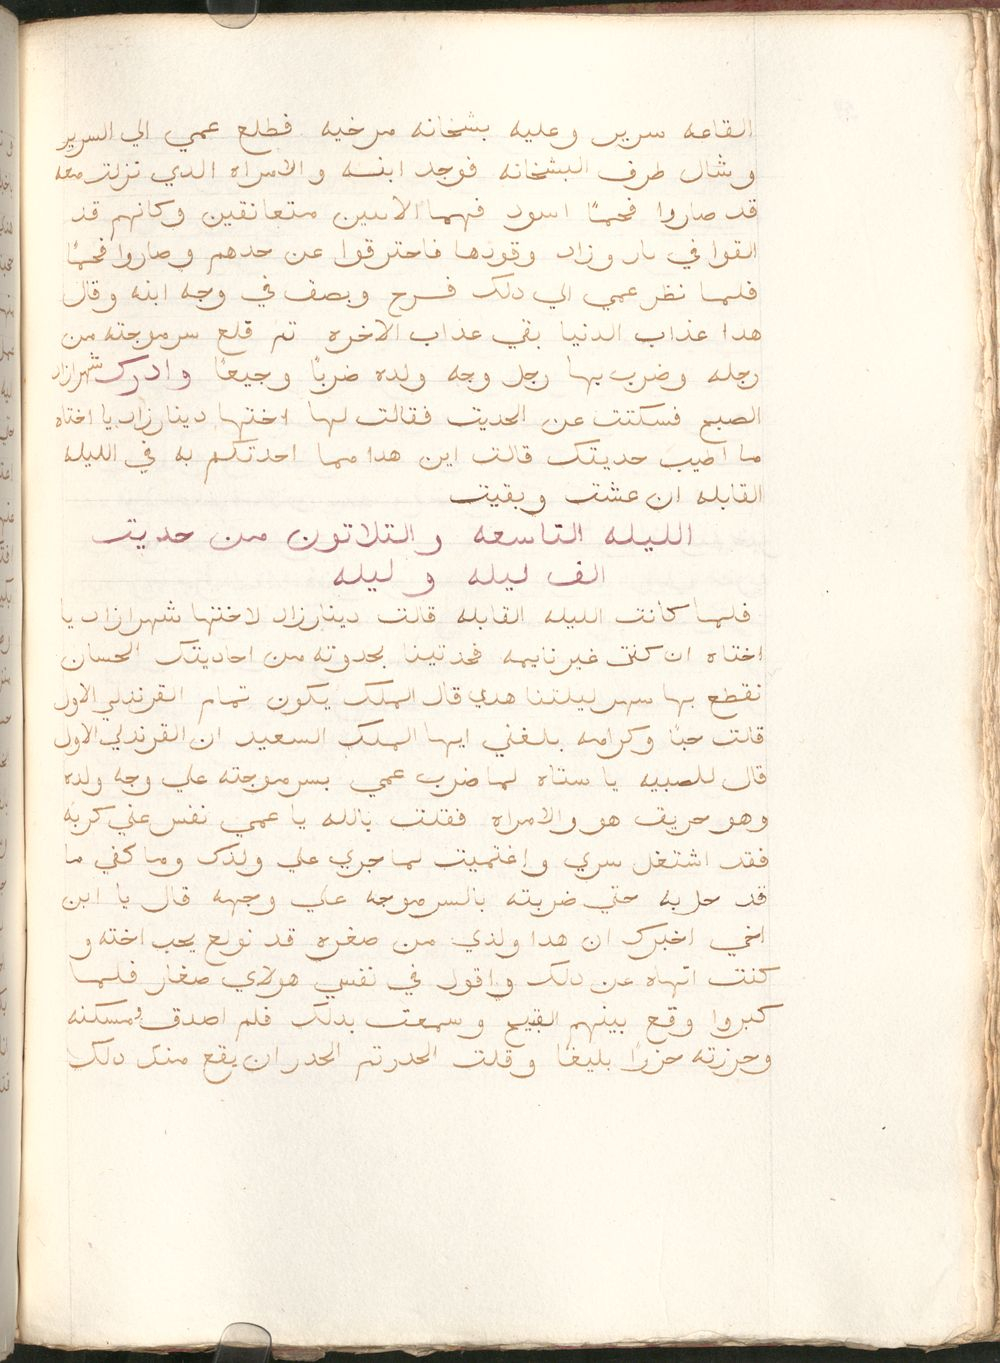 القاعه سرير وعليه بشخانه مرخيه فطلع عمي الي السرير
وشال طرف البشخانه فوجد ابنه والامراه الدي نزلت معه
قد صاروا فحمًا اسود فهما الاتنين متعانقين وكانهم قد
القوا في نار وزاد وقودها فاحترقوا عن حدهم وصاروا فحمًا
فلما نظر عمي الي دلك فرح وبصق في وجه ابنه وقال
هدا عداب الدنيا بقي عداب الاخره تم قلع سرموجته من
رجله وضرب بها رجل وجه ولده ضربًا وجيعًا وادرك شهرازاد
الصبح فسكتت عن الحديت فقالت لها اختها دينارزاد يا اختاه
ما اطيب حديتك قالت اين هدا مما احدتكم به في الليله
القابله ان عشت وبقيت
الليله التاسعه والتلاتون من حديت
الف ليله وليله
فلما كانت الليله القابله قالت دينارزاد لاختها شهرازاد يا
اختاه ان كنتي غير نايمه فحدتينا بحدوته من احاديتك الحسان
نقطع بها سهر ليلتنا هدي قال الملك يكون تمام القرندلي الاول
قالت حبًا وكرامه بلغني ايها الملك السعيد ان القرندلي الاول
قال للصبيه يا ستاه لما ضرب عمي بسرموجته علي وجه ولده
وهو حريق هو والامراه فقلت بالله يا عمي نفس عني كربه
فقد اشتغل سري واغتميت لما جري علي ولدك وما كفي ما
قد حل به حتي ضربته بالسرموجه علي وجهه قال يا ابن
اخي اخبرك ان هدا ولدي من صغره قد تولع بحب اخته و
كنت انهاه عن دلك واقول في نفسي هولاي صغار فلما
كبروا وقع بينهم القبيح وسمعت بدلك فلم اصدق ومسكته
وحزرته حزرًا بليغًا وقلت الحدر تم الحدر ان يقع منك دلك